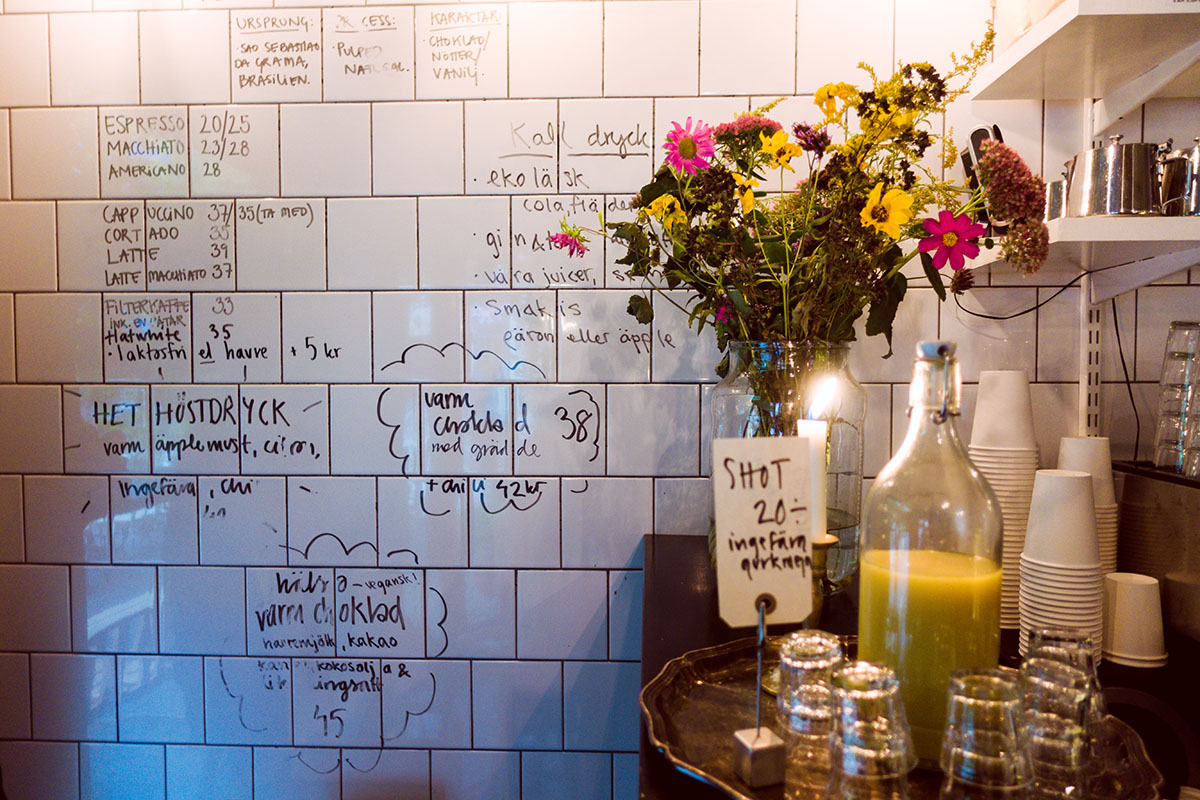 URSPRUNG:
· SAO SEBASTIAO
DA GRAMA,
BRASILIEN.
CESS:
· PULPED
NATURAL.
KARAKTÄR
· CHOKLAD/
NÖTTER/
VANILJ.
ESPRESSO 20/25
MACCHIATO 23/28
AMERICANO 28
CAPPUCCINO 37/35 (TA MED)
CORTADO 35
LATTE 39
LATTE MACCHIATO 37
FILTERKAFFE 33
INK. EN
flatwhite 35
· laktosfri el havre + 5 kr
Kall dryck
· eko läsk
cola fläder
· gin &
· våra juicer,
· Smakis
päron eller äpple
HET HÖSTDRYCK
varm äpplemust, citron,
ingefära, chi
varm
choklad 38
med grädde
+ chi 42 kr
VEGANSK!
varm choklad
havremjölk, kakao
kokosolja &
45
SHOT
20÷
ingefära
gurkmeja